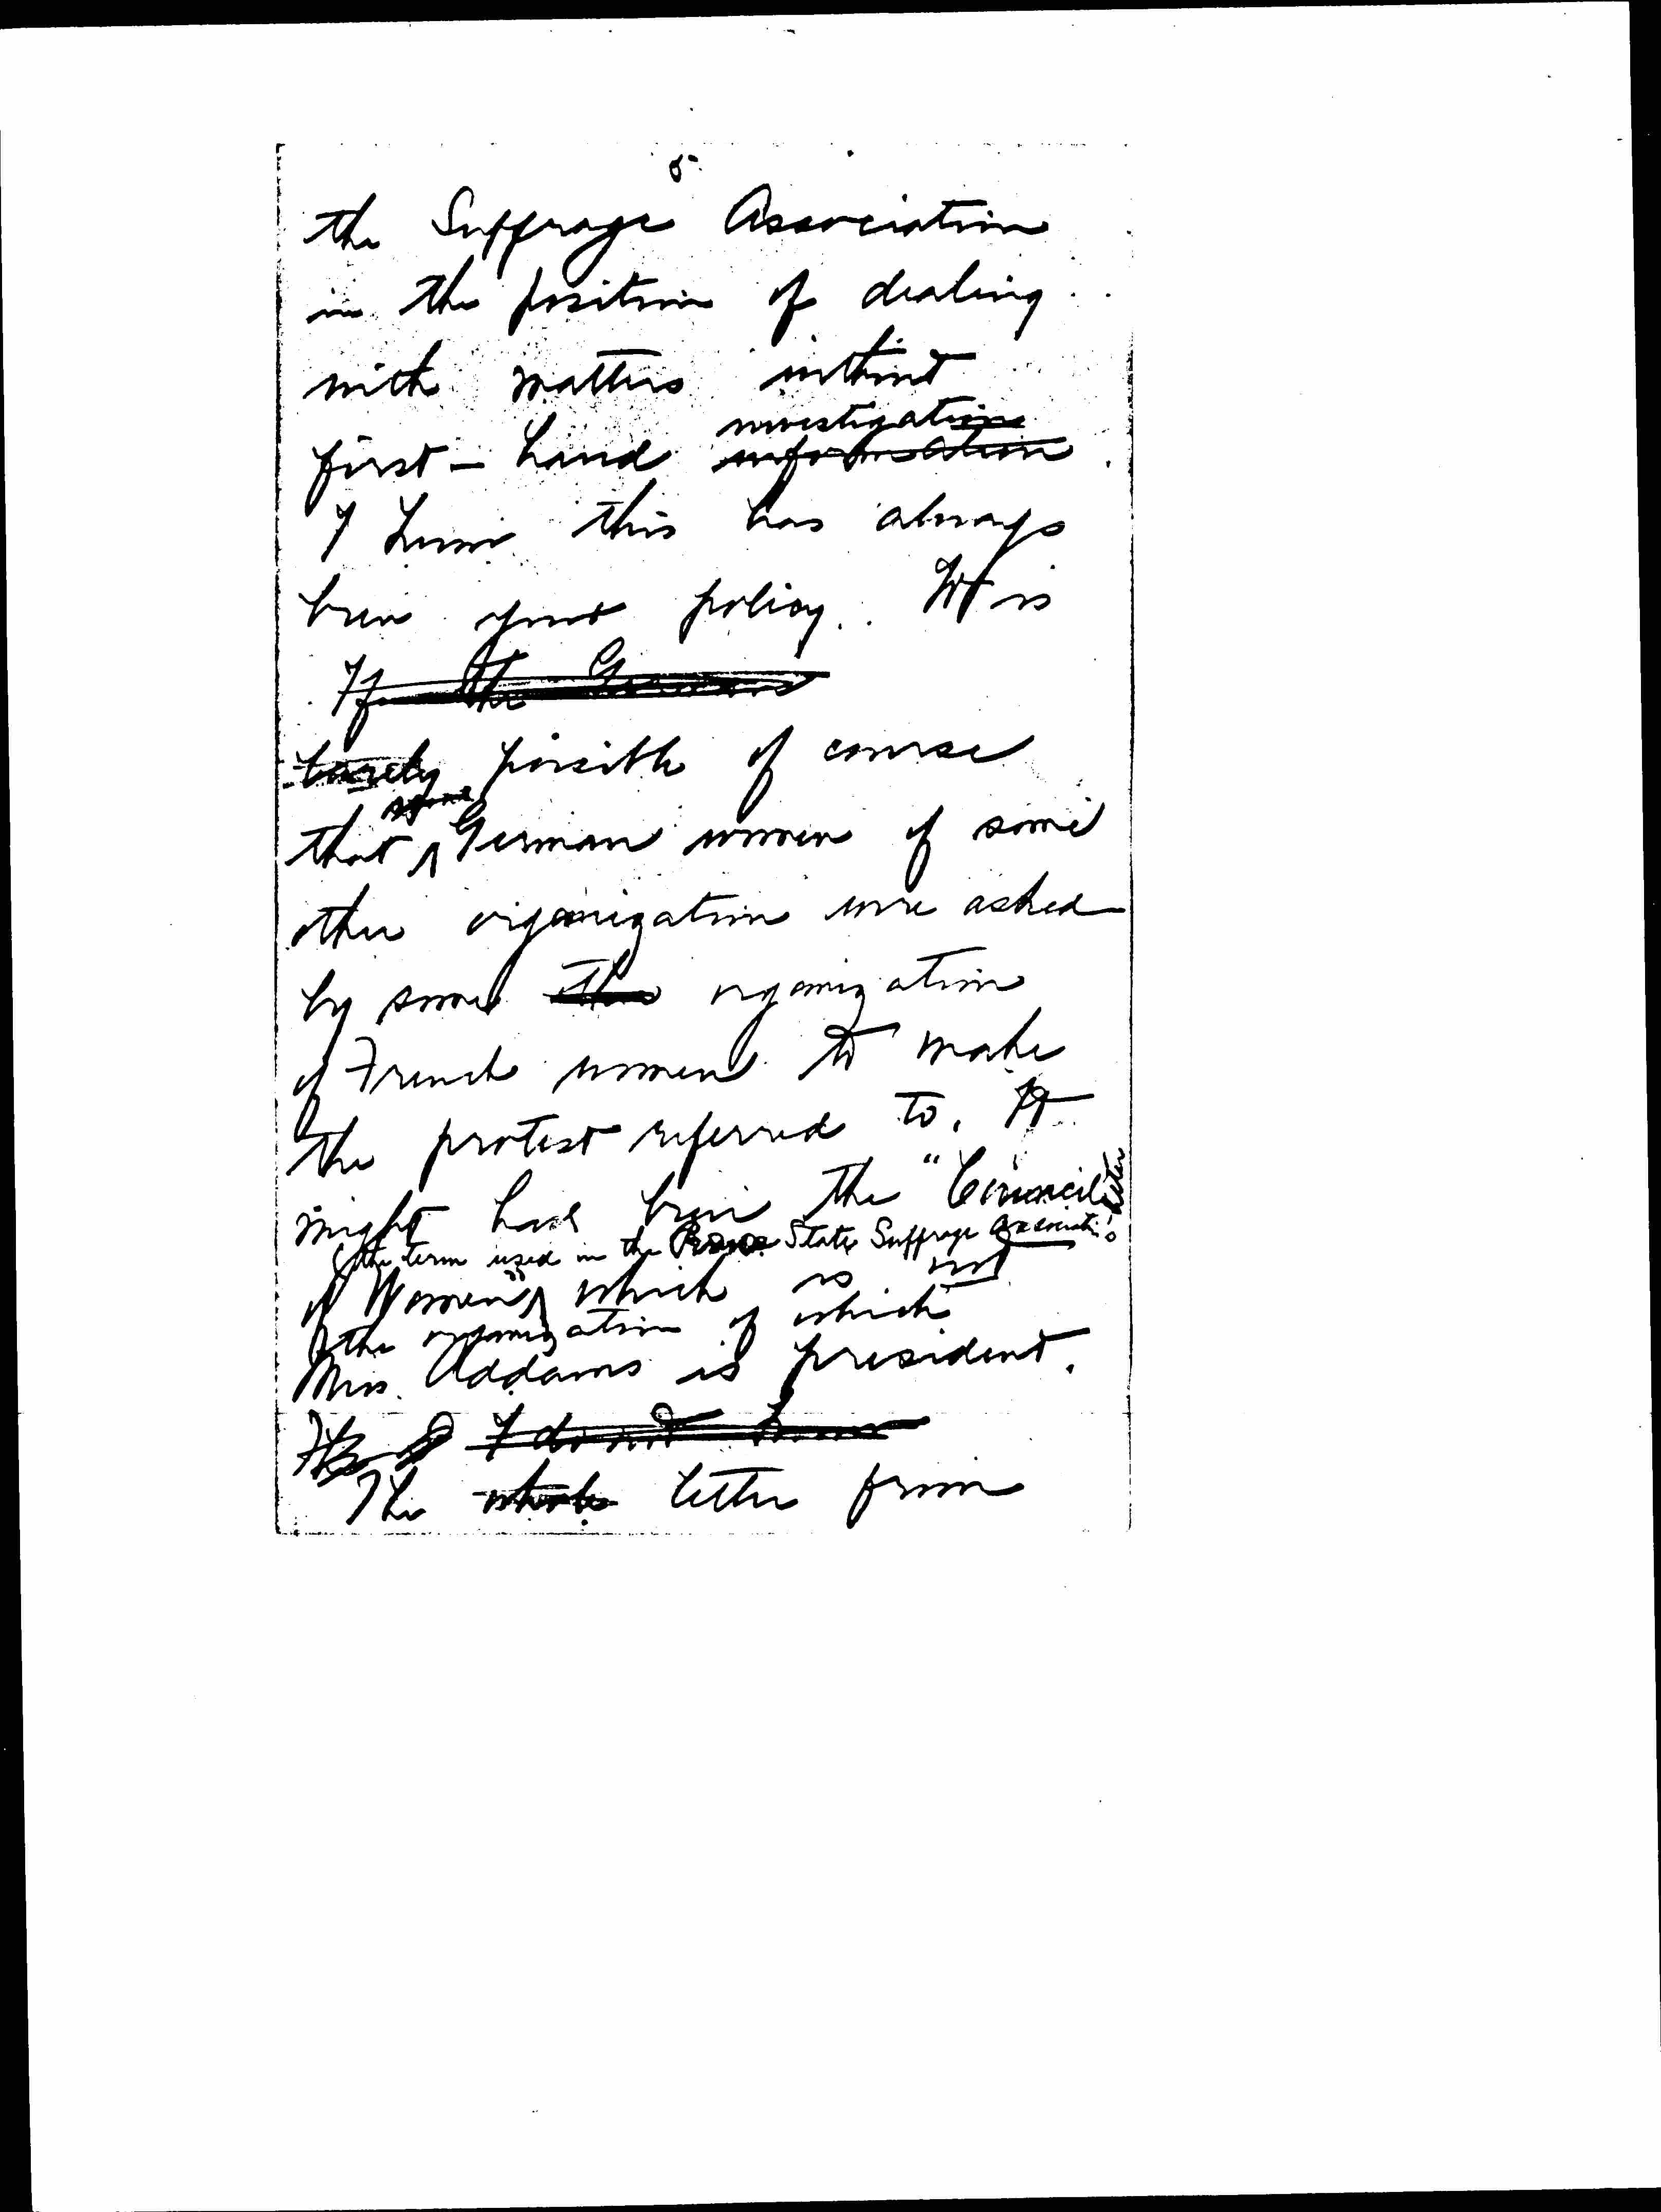 5.
the Suffrage Association
in the position of dealing
with matters without
investigation
first-hand information.
I know this has always
been your policy. It is
If the Germans
barely possible of course
some
that ^ German women of some
other organization were asked
by some other organization
of French women to make
the protest referred to. It
might have been the "Council
(the term used in the State Suffrage Associatio's letter
of Women" ^ which is not
the organization of which
Miss Addams is president.
I do not know
The whole letter from